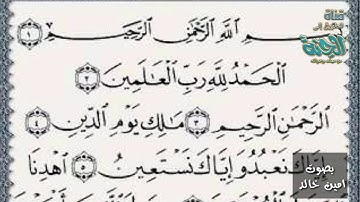 بِسْمِ ٱللَّهِ ٱلرَّحْمَٰنِ ٱلرَّحِيمِ ١
ٱلْحَمْدُ لِلَّهِ رَبِّ ٱلْعَٰلَمِينَ ٢
ٱلرَّحْمَٰنِ ٱلرَّحِيمِ ٣ مَٰلِكِ يَوْمِ ٱلدِّينِ ٤
إِيَّاكَ نَعْبُدُ وَإِيَّاكَ نَسْتَعِينُ ٥ ٱهْدِنَا
قناة
الجنة
بصوت
امين خالد